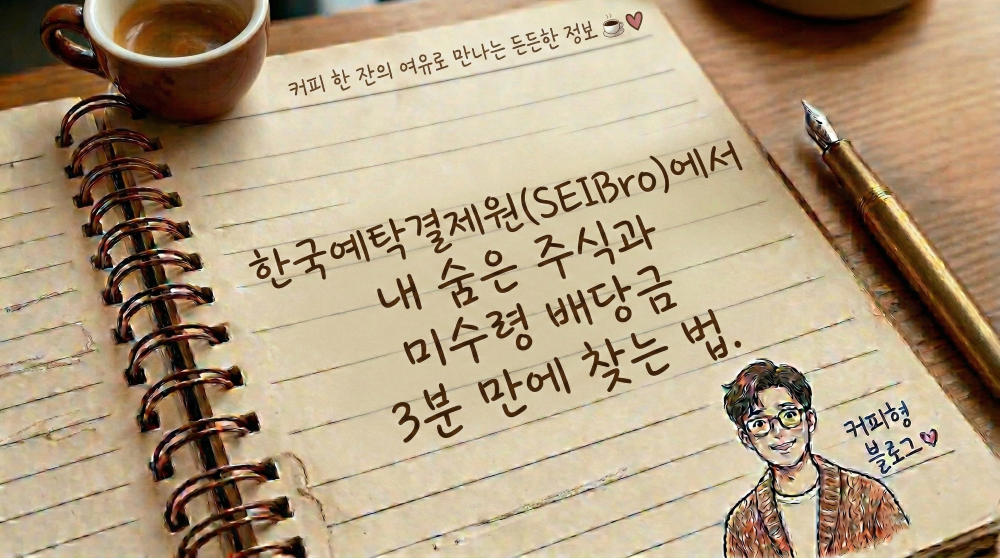 커피 한 잔의 여유로 만나는 든든한 정보
한국예탁결제원(SEIBro)에서
내 숨은 주식과
미수령 배당금
3분 만에 찾는 법.
커피형
블로그